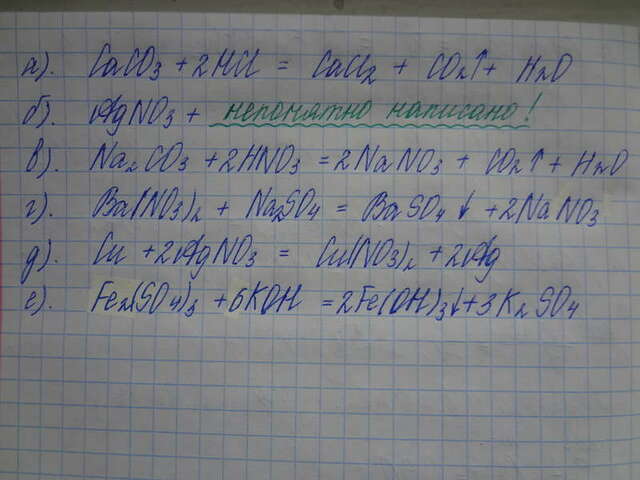 а). CaCO3 + 2HCl = CaCl2 + CO2↑ + H2O
б). AgNO3 + непонятно написано!
в). Na2CO3 + 2HNO3 = 2NaNO3 + CO2↑ + H2O
г). Ba(NO3)2 + Na2SO4 = BaSO4↓ + 2NaNO3
д). Cu + 2AgNO3 = Cu(NO3)2 + 2Ag
е). Fe2(SO4)3 + 6KOH = 2Fe(OH)3↓ + 3K2SO4